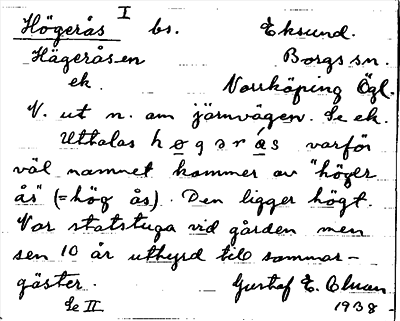 I
Högerås bs. Eksund.
Hägeråsen Borgs sn.
ek. Norrköping Ögl.
N. ut n. om järnvägen. Se ek.
Uttalas høgərás varför
väl namnet kommer av "höger
ås" (=hög ås). Den ligger högt.
Var statstuga vid gården men
sen 10 år uthyrd till sommar-
gäster. Gustaf E.
Se II 1938